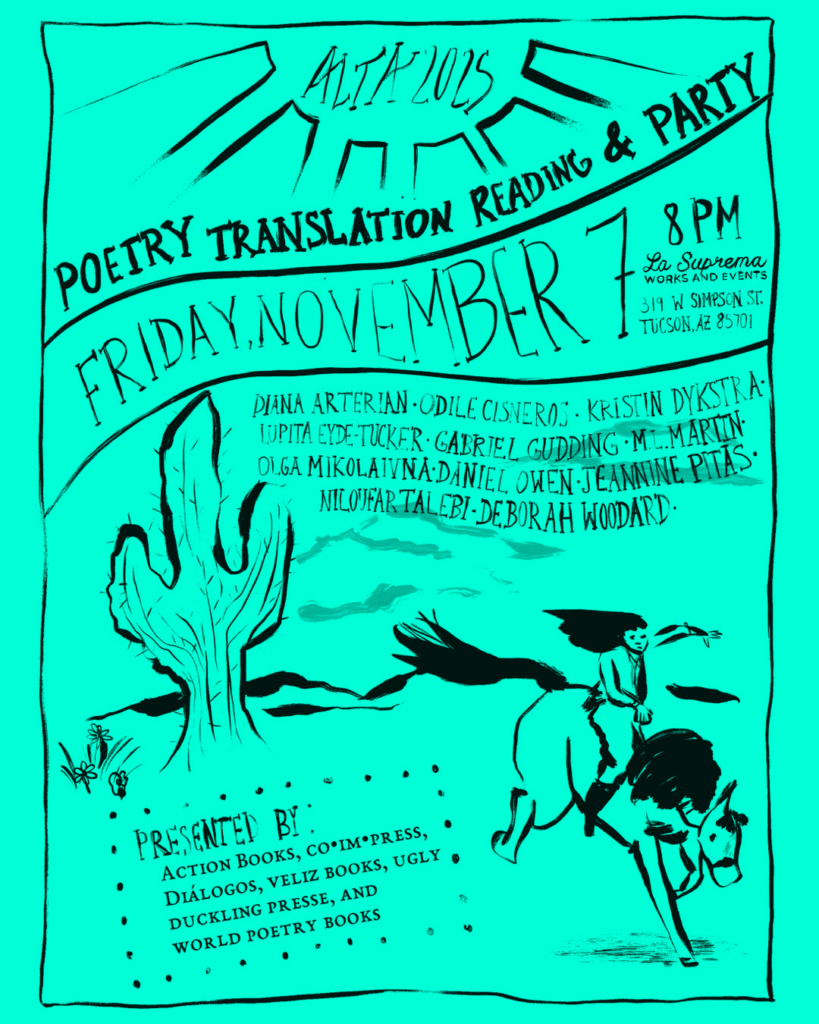 ALTA 2025
POETRY TRANSLATION READING & PARTY
FRIDAY, NOVEMBER 7
8 PM
La Suprema
WORKS AND EVENTS
319 W SIMPSON ST.
TUCSON, AZ 85701
DIANA ARTERIAN · ODILE CISNEROS · KRISTIN DYKSTRA ·
LUPITA EYDE-TUCKER · GABRIEL GUDDING · M.L. MARTIN ·
OLGA MIKOLAIVNA · DANIEL OWEN · JEANNINE PITAS ·
NILOUFAR TALEBI · DEBORAH WOODARD ·
PRESENTED BY:
ACTION BOOKS, CO•IM•PRESS,
DIÁLOGOS, VELIZ BOOKS, UGLY
DUCKLING PRESSE, AND
WORLD POETRY BOOKS